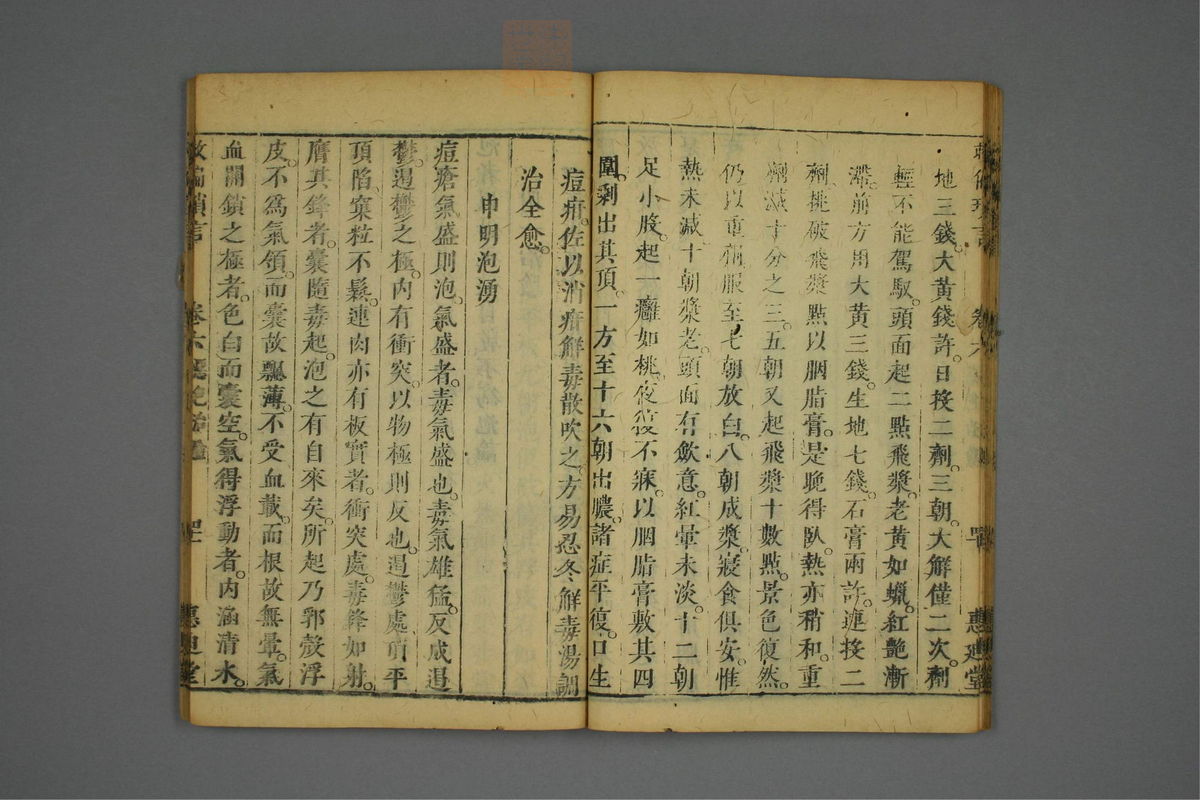 救偏瑣言 卷六 惠迪堂
地三錢。大黃錢許。日投二劑。三朝。大解僅二次。劑
輕不能駕馭。頭面起二點飛漿。老黃如蠟。紅艷漸
滯。前方用大黃三錢。生地七錢。石膏兩許。連投二
劑。挑破飛漿。點以胭脂膏。是晚得臥。熱亦稍和。重
劑減十分之三。五朝又起飛漿十數點。景色復然。
仍以重劑服至七朝放白。八朝成漿。寢食俱安。惟
熱未減。十朝漿老。頭面有歛意。紅暈未淡。十二朝
足小股。起一癰如桃。夜復不寐。以胭脂膏敷其四
圍。剩出其頂。一方至十六朝出膿。諸症平復。口生
痘疳。佐以消疳解毒散吹之。方易忍冬解毒湯調
治全愈。
申明泡湧
痘瘡氣盛則泡。氣盛者。毒氣盛也。毒氣雄猛。反成遏
鬱。遏鬱之極。內有衝突。以物極則反也。遏鬱處。頂平
頂陷。窠粒不鬆。連肉亦有板實者。衝突處。毒鋒如射。
膺其鋒者。囊隨毒起。泡之有自來矣。所起乃郛殼浮
皮。不爲氣領。而囊故飄薄。不受血載。而根故無暈。氣
血關鎖之極者。色白而囊空。氣得浮動者。內涵清水。
救偏瑣言 卷六 惠迪堂